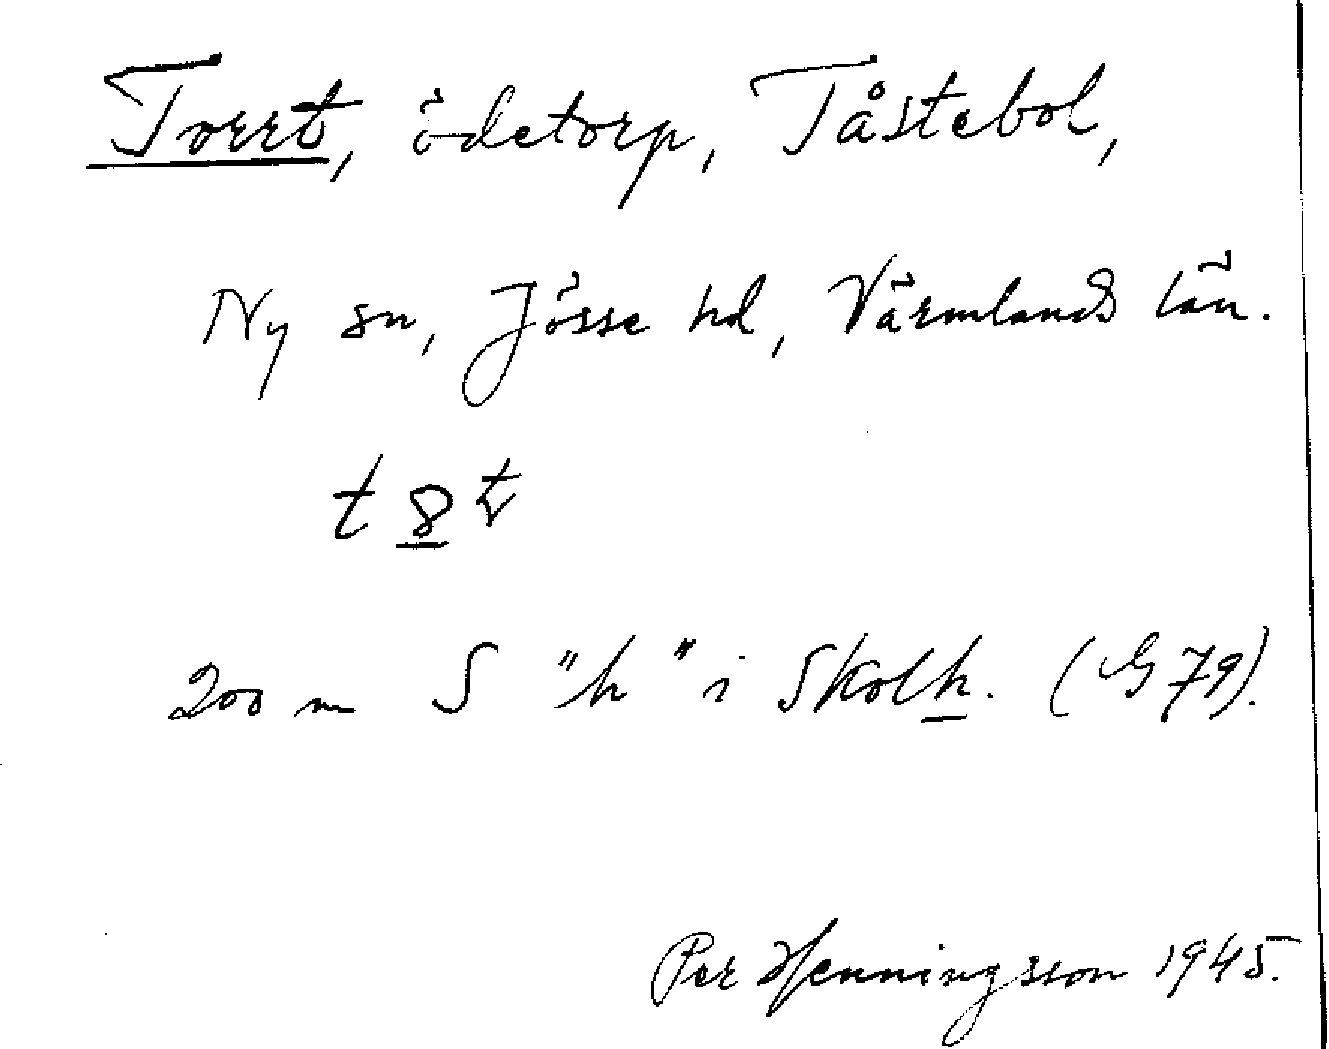 Torrt, ödetorp, Tåstebol,
Ny sn, Jösse hd, Värmlands län.
200 m S "h" i Skolh. (G 79).
Per Henningsson 1945.